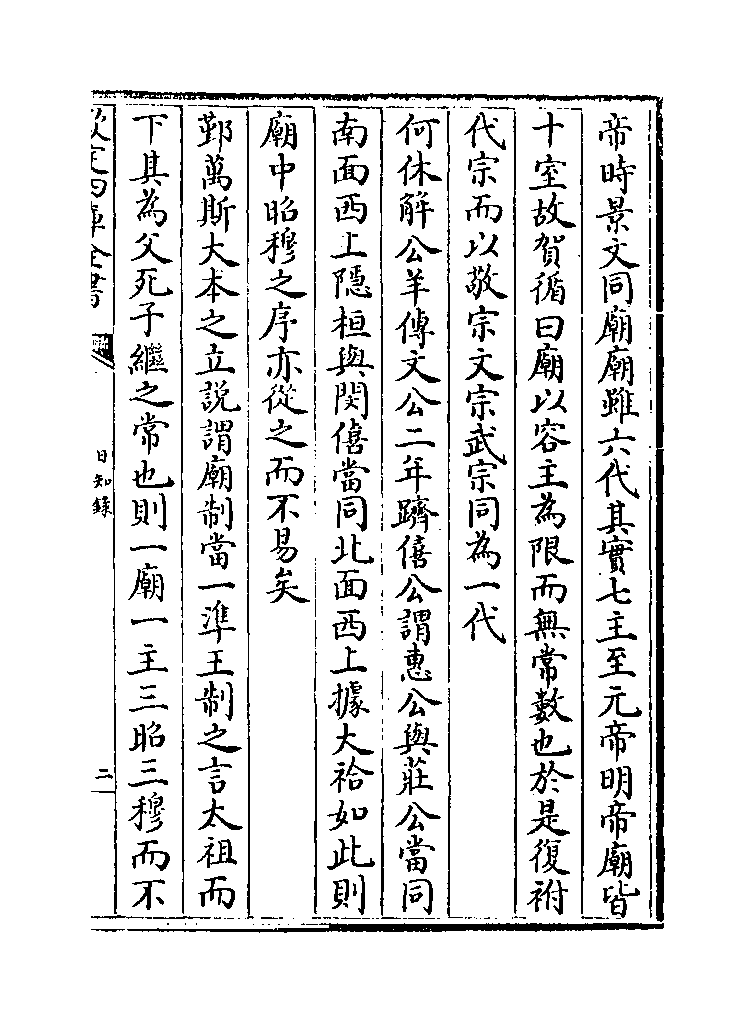 帝時景文同廟廟雖六代其實七主至元帝明帝廟皆
十室故賀循曰廟以容主為限而無常數也於是復祔
代宗而以敬宗文宗武宗同為一代
何休解公羊傳文公二年躋僖公謂惠公與莊公當同
南面西上隱桓與閔僖當同北面西上據大祫如此則
廟中昭穆之序亦從之而不易矣
鄞萬斯大本之立說謂廟制當一準王制之言太祖而
下其為父死子繼之常也則一廟一主三昭三穆而不
欽定四庫全書
日知錄
二